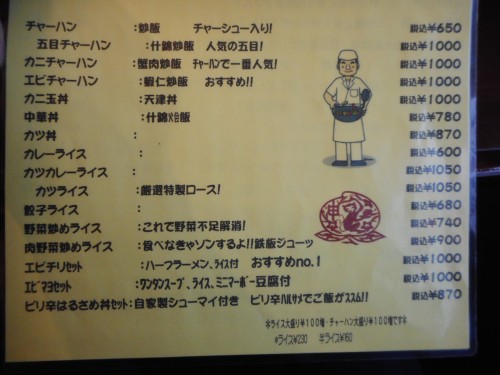 チャーハン :炒飯 チャーシュー入り! 税込¥650
五目チャーハン :什錦炒飯 人気の五目! 税込¥1000
カニチャーハン :蟹肉炒飯 チャーハンで一番人気! 税込¥1000
エビチャーハン :蝦仁炒飯 おすすめ!! 税込¥1000
カニ玉丼 :天津丼 税込¥1000
中華丼 :什錦火会飯 税込¥780
カツ丼 : 税込¥870
カレーライス : 税込¥600
カツカレーライス : 税込¥1050
カツライス :厳選特製ロース! 税込¥1050
餃子ライス : 税込¥680
野菜炒めライス :これで野菜不足解消! 税込¥740
肉野菜炒めライス :食べなきゃソンするよ!!鉄飯ジューッ 税込¥900
エビチリセット :ハーフラーメン、ライス付 おすすめno.1 税込¥1000
エビマヨセット :ワンタンスープ、ライス、ミニマーボー豆腐付 税込¥1000
ピリ辛はるさめ丼セット:自家製シューマイ付き ピリ辛ハルサメでご飯がススム!! 税込¥870
*ライス大盛り¥100増・チャーハン大盛り¥100増です*
*ライス¥230 半ライス¥160